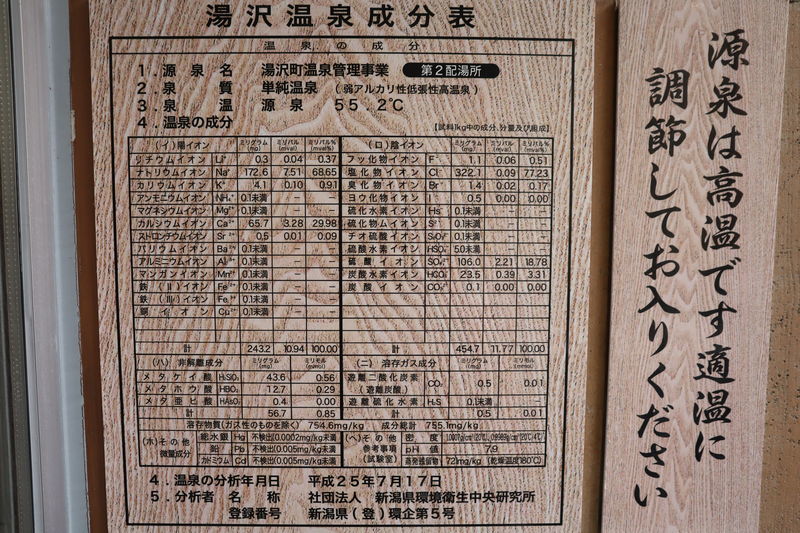 湯沢温泉成分表
温泉の成分
1. 源泉名 湯沢町温泉管理事業 第2配湯所
2. 泉質 単純温泉 (弱アルカリ性低張性高温泉)
3. 泉温 源泉 55.2℃
4. 温泉の成分 【試料1kg中の成分、分量及び組成】
(イ)陽イオン ミリグラム(mg) ミリバル(mval) ミリバル%(mval%)
リチウムイオン Li⁺ 0.3 0.04 0.37
ナトリウムイオン Na⁺ 172.6 7.51 68.65
カリウムイオン K⁺ 4.1 0.10 0.91
アンモニウムイオン NH₄⁺ 0.1未満 − −
マグネシウムイオン Mg²⁺ 0.1未満 − −
カルシウムイオン Ca²⁺ 65.7 3.28 29.98
ストロンチウムイオン Sr²⁺ 0.5 0.01 0.09
バリウムイオン Ba²⁺ 0.1未満 − −
アルミニウムイオン Al³⁺ 0.1未満 − −
マンガンイオン Mn²⁺ 0.1未満 − −
鉄(Ⅱ)イオン Fe²⁺ 0.1未満 − −
鉄(Ⅲ)イオン Fe³⁺ 0.1未満 − −
銅イオン Cu²⁺ 0.1未満 − −
計 243.2 10.94 100.00
(ロ)陰イオン ミリグラム(mg) ミリバル(mval) ミリバル%(mval%)
フッ化物イオン F⁻ 1.1 0.06 0.51
塩化物イオン Cl⁻ 322.1 9.09 77.23
臭化物イオン Br⁻ 1.4 0.02 0.17
ヨウ化物イオン I⁻ 0.5 0.00 0.00
硫化水素イオン HS⁻ 0.1未満 − −
硫化物イオン S²⁻ 0.1未満 − −
チオ硫酸イオン 0.1未満 − −
硫酸水素イオン HSO₄⁻ 5.0未満 − −
硫酸イオン SO₄²⁻ 106.0 2.21 18.78
炭酸水素イオン HCO₃⁻ 23.5 0.39 3.31
炭酸イオン CO₃²⁻ 0.1 0.00 0.00
計 454.7 11.77 100.00
(ハ)非解離成分 ミリグラム(mg) ミリモル(mmol)
メタケイ酸 H₂SiO₃ 43.6 0.56
メタホウ酸 HBO₂ 12.7 0.29
メタ亜ヒ酸 HAsO₂ 0.4 0.00
計 56.7 0.85
(ニ)溶存ガス成分 ミリグラム(mg) ミリモル(mmol)
遊離二酸化炭素(遊離炭酸) CO₂ 0.5 0.01
遊離硫化水素 H₂S 0.1未満 −
計 0.5 0.01
溶存物質(ガス性のものを除く) 754.6mg/kg 成分総計 755.1mg/kg
(ホ)その他微量成分
総水銀 Hg 不検出(0.0002mg/kg未満)
鉛 Pb 不検出(0.005mg/kg未満)
カドミウム Cd 不検出(0.005mg/kg未満)
(ヘ)その他参考事項(試験室)
密度
pH値 7.9
蒸発残留物 721mg/kg (乾燥温度180℃)
4. 温泉の分析年月日 平成25年7月17日
5. 分析者 名称 社団法人 新潟県環境衛生中央研究所
登録番号 新潟県(登)環企第5号
源泉は高温です適温に
調節してお入りください